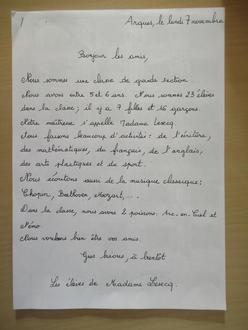 Arques, le lundi 7 novembre
Bonjour les amis,
Nous sommes une classe de grande section.
Nous avons entre 5 et 6 ans. Nous sommes 23 élèves
dans la classe ; il y a 7 filles et 16 garçons.
Notre maîtresse s'appelle Madame Lesecq.
Nous faisons beaucoup d'activités : de l'écriture,
des mathématiques, du français, de l'anglais,
des arts plastiques et du sport.
Nous écoutons aussi de la musique classique :
Chopin, Beethoven, Mozart, ...
Dans la classe, nous avons 2 poissons : Arc-en-Ciel et
Némo
Nous voulons bien être vos amis.
Gros bisous, à bientôt
Les élèves de Madame Lesecq.